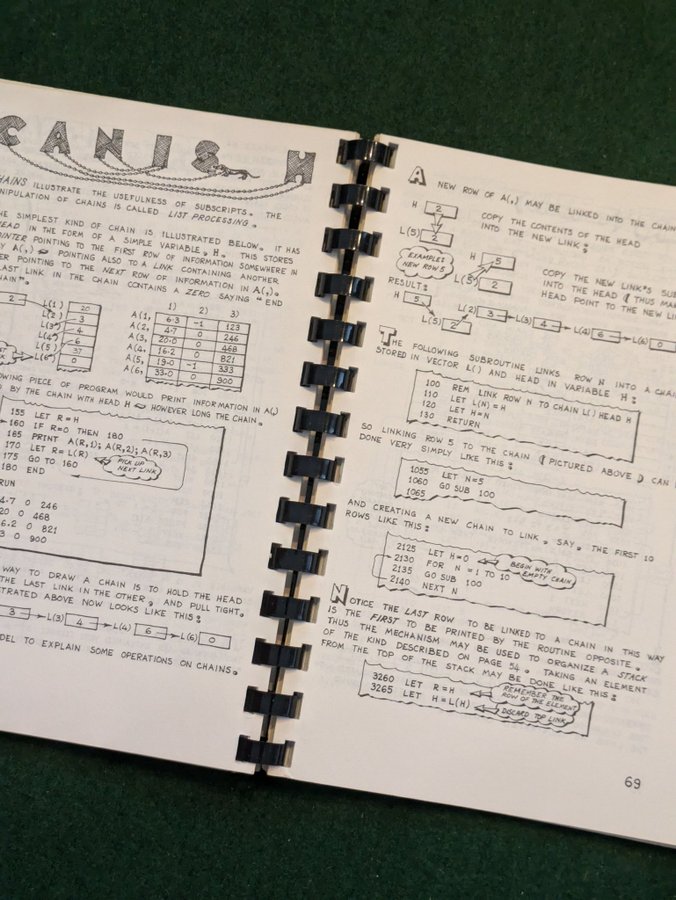 CANIS H
CHAINS ILLUSTRATE THE USEFULNESS OF SUBSCRIPTS. THE
MANIPULATION OF CHAINS IS CALLED LIST PROCESSING.
THE SIMPLEST KIND OF CHAIN IS ILLUSTRATED BELOW. IT HAS
HEAD IN THE FORM OF A SIMPLE VARIABLE, H. THIS STORES
POINTER POINTING TO THE FIRST ROW OF INFORMATION SOMEWHERE IN
A(,) POINTING ALSO TO A LINK CONTAINING ANOTHER
POINTER POINTING TO THE NEXT ROW OF INFORMATION IN A(,).
LAST LINK IN THE CHAIN CONTAINS A ZERO SAYING "END
CHAIN".
2
L(1) 20
L(2) 3
L(3) 4
L(4) 6
L(5) 37
L(6) 0
1) 2) 3)
A(1, 6·3 -1 123
A(2, 4·7 0 246
A(3, 20·0 0 468
A(4, 16·2 0 821
A(5, 19·0 -1 333
A(6, 33·0 0 900
OWING PIECE OF PROGRAM WOULD PRINT INFORMATION IN A(,)
D BY THE CHAIN WITH HEAD H HOWEVER LONG THE CHAIN.
155 LET R=H
160 IF R=0 THEN 180
165 PRINT A(R,1); A(R,2); A(R,3)
170 LET R=L(R) PICK UP NEXT LINK
175 GO TO 160
180 END
RUN
4·7 0 246
20 0 468
6·2 0 821
3 0 900
WAY TO DRAW A CHAIN IS TO HOLD THE HEAD
THE LAST LINK IN THE OTHER, AND PULL TIGHT.
STRATED ABOVE NOW LOOKS LIKE THIS:
3 L(3) 4 L(4) 6 L(6) 0
DEL TO EXPLAIN SOME OPERATIONS ON CHAINS.
A NEW ROW OF A(,) MAY BE LINKED INTO THE CHAIN
H 2
L(5) 2
COPY THE CONTENTS OF THE HEAD
INTO THE NEW LINK:
EXAMPLE:
NEW ROW 5
H 5
L(5) 2
COPY THE NEW LINK'S SU
INTO THE HEAD (THUS MAK
HEAD POINT TO THE NEW LI
RESULT:
H 5
L(5) 2 L(2) 3 L(3) 4 L(4) 6 L(6) 0
THE FOLLOWING SUBROUTINE LINKS ROW N INTO A CHAI
STORED IN VECTOR L() AND HEAD IN VARIABLE H:
100 REM LINK ROW N TO CHAIN L() HEAD H
110 LET L(N)=H
120 LET H=N
130 RETURN
SO LINKING ROW 5 TO THE CHAIN (PICTURED ABOVE) CAN
DONE VERY SIMPLY LIKE THIS:
1055 LET N=5
1060 GO SUB 100
1065
AND CREATING A NEW CHAIN TO LINK, SAY, THE FIRST 10
ROWS LIKE THIS:
2125 LET H=0 BEGIN WITH
2130 FOR N = 1 TO 10 EMPTY CHAIN
2135 GO SUB 100
2140 NEXT N
NOTICE THE LAST ROW TO BE LINKED TO A CHAIN IN THIS WAY
IS THE FIRST TO BE PRINTED BY THE ROUTINE OPPOSITE.
THUS THE MECHANISM MAY BE USED TO ORGANIZE A STACK
OF THE KIND DESCRIBED ON PAGE 54. TAKING AN ELEMENT
FROM THE TOP OF THE STACK MAY BE DONE LIKE THIS:
3260 LET R=H REMEMBER THE ROW OF THE ELEMENT
3265 LET H=L(H) DISCARD TOP LINK
69